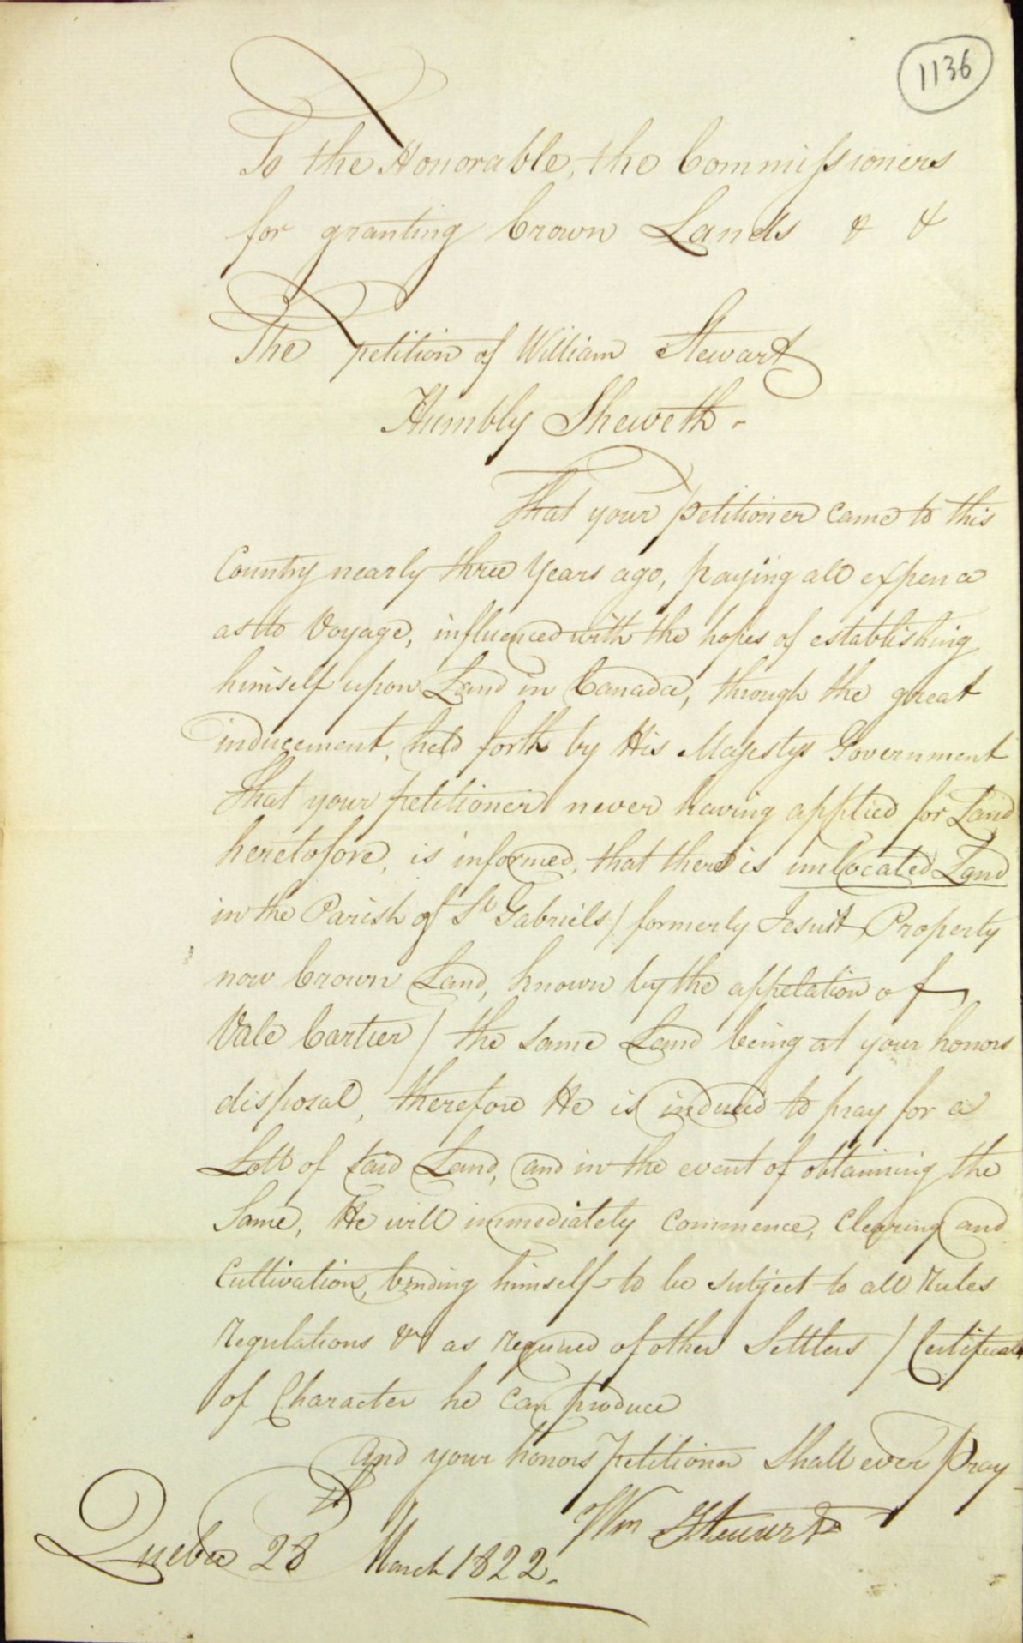 1136
To the Honorable, the Commissioners
for granting Crown Lands & &
The petition of William Stewart
Humbly Sheweth -
That your petitioner came to this
Country nearly three Years ago, paying all expence
as to Voyage, influenced with the hopes of establishing
himself upon Land in Canada, through the great
inducement, held forth by His Majestys Government
That your petitioner never having applied for Land
heretofore, is informed, that there is unlocated Land
in the Parish of St Gabriels / formerly Jesuit Property
now Crown Land, known by the appelation of
Vale Cartier / the same Land being at your honors
disposal, therefore He is induced to pray for a
Lott of said Land, and in the event of obtaining the
Same, He will immediately commence, Clearing and
Cultivation, binding himself to be subject to all rules
regulations & as required of other Settlers / Certificate
of Character he can produce
And your honors petitioner shall ever pray
Wm Stewart
Quebec 28 March 1822.